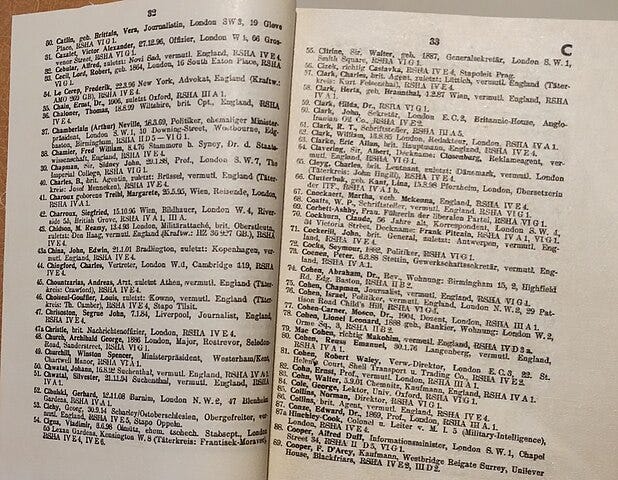 32
30. Catlin, geb. Brittain, Vera, Journalistin, London SW 3, 19 Glebe
Place, RSHA VI G 1.
31. Cazalet, Victor Alexander, 27.12.96, Offizier, London W 1, 66 Gros-
venor Street, RSHA VI G 1.
32. Cebular, Alfred, zuletzt: Novi Sad, vermutl. England, RSHA IV E 4.
33. Cecil, Lord, Robert, geb. 1864, London, 16 South Eaton Place, RSHA
VI G 1.
34. Le Cerep, Frederik, New York, Advokat, England (Kraftw.:
RSHA IV E 4.
35. Chain, Ernst, Dr., 1906, zuletzt Oxford, RSHA III A 1.
36. Chaloner, Thomas, Wiltshire, brit. Cpt., England, RSHA
IV E 4.
37. Chamberlain (Arthur) Neville, 18.3.69, Politiker, ehemaliger Minister-
präsident, London S. W. 1, 10 Downing-Street, Westbourne, Edg-
baston, Birmingham, RSHA II D 5 — VI G 1.
38. Chamier, Fred William, 8.4.76 Stammore b. Syney, Dr. d. Staats-
wissenschaft, England, RSHA IV E 4.
39. Chapman, Sir, Sidney John, 29.1.88, Prof., London S. W. 7, The
Imperial College, RSHA VI G 1.
40. Charles, B., brit. Agentin, zuletzt: Brüssel, vermutl. England (Täter-
kreis: Josef Menneken), RSHA IV E 4.
41. Charoux geborene Treibl, Margarete, 25.5.95, Wien, Reisende, London,
RSHA IV A 1.
42. Charroux, Siegfried, 15.10.96 Wien, Bildhauer, London W. 4, River-
side 54, British Grove, RSHA IV A 1, III A.
43. Chidson, M. Reamy, 13.4.93 London, Militärattaché, brit. Oberstleutn.,
zuletzt: Den Haag, vermutl. England (Kraftw.: HZ RSHA
IV E 4.
43a China, John, Edwin, 21.1.01 Bradington, zuletzt: Kopenhagen, ver-
mutl. England, RSHA IV E 4.
44. Chingford, Charles, Vertreter, London W. 1, Cambridge 119, RSHA
IV E 4.
45. Chountzarias, Andreas, Arzt, zuletzt Athen, vermutl. England (Täter-
kreis: Crawford), RSHA IV E 4.
46. Choiseul-Gouffier, Louis, zuletzt: Kowno, vermutl. England (Täter-
kreis: Th. Camber), RSHA IV E 4, Stapo Tilsit.
47. Chrisoston, Segrue John, 7.1.84, Liverpool, Journalist, England,
RSHA IV E 4.
47a Christie, brit. Nachrichtenoffizier, London, RSHA IV E 4.
48. Church, Archibald George, 1886 London, Major, Rostrevor, Selsdon
Road, Sanderstreet, RSHA VI G 1.
49. Churchill, Winston Spencer, Ministerpräsident, Westerham/Kent,
Chartwell Manor, RSHA VI A 1.
50. Chwatal, Johann, 15.8.92 Suchenthal, vermutl. England, RSHA IV A 1.
51. Chwatal, Silvester, 21.11.94 Suchenthal, vermutl. England, RSHA
IV A 1.
52. Chulski, Gerhard, 12.11.08 Barnim, London N. W. 2, 47 Blenheim
Gardens, RSHA IV A 1.
53. Cichy, Georg, 30.9.14 Scharley/Ostoberschlesien, Obergefreiter, ver-
mutl. England, RSHA IV E 5, Stapo Oppeln.
54. Cigna, Vladimir, 8.6.98 Olmütz, ehem. tschech. Stabsept., London
55 Lexan Gardens, Kensington W. 8 (Täterkreis: Frantisek-Moravec),
RSHA IV E 4, IV E 6.
33
C
55. Citrine, Sir, Walter, geb. 1887, Generalsekretär, London S. W. 1,
Smith Square, RSHA VI G 1.
56. Cizek, richtig Castavka, RSHA IV E 4, Stapoleit Prag.
57. Clark, Charles, brit. Agent, zuletzt: Lüttich, vermutl. England (Täter-
kreis: Kurt Felsenthal), RSHA IV E 4.
58. Clark, Herta, geb. Braunthal, 1.2.87 Wien, vermutl. England, RSHA
IV A 1.
59. Clark, Hilda, Dr., RSHA VI G 1.
60. Clark, John, Sekretär, London E. C. 2, Britannic-House, Anglo-
Iranian Oil Co., RSHA IV E 2.
61. Clark, R. T., Schriftsteller, RSHA III A 5.
62. Clark, William, 18.8.85 London, RSHA IV A 1.
63. Clarke, Eric Allan, brit. Hauptmann, England, RSHA IV E 4.
64. Clavering, Sir, Albert, Deckname: Closenburg, Reklameagent, ver-
mutl. England, RSHA VI G 1.
65. Cleyg, Charles, brit. Leutnant, zuletzt: Dänemark, vermutl. London
(Täterkreis: John Hugill), RSHA IV E 4.
66. Clutterbuk, geb. Kant, Lina, 15.8.98 Pforzheim, London, Übersetzerin
der ITF., RSHA IV A 1 b.
67. Cnockaert, Martha, vereh. McKenna, England, RSHA IV E 4.
68. Coatts, W. P., Schriftsteller, vermutl. England, RSHA VI G 1.
69. Corbett-Ashby, Frau, Führerin der liberalen Partei, RSHA VI G 1.
70. Cockburn, Claude, 36 Jahre alt, Korrespondent, London S. W. 1,
84 Victoria Street, Deckname: Frank Pitcairn, RSHA IV A 1, VI G 1.
71. Cockerill, John, brit. General, zuletzt: Antwerpen, vermutl. Eng-
land, RSHA IV E 4.
72. Cocks, Seymur, 1882, Politiker, RSHA VI G 1.
73. Coenen, Peter, 6.2.88 Stettin, Gewerkschaftssekretär, vermutl. Eng-
land, RSHA IV A 1.
74. Cohen, Abraham, Dr., Rev., Wohnung: Birmingham 15, 2, Highfield
Rd. Edg. Baston, RSHA II B 2.
75. Cohen, Chapman, Journalist, vermutl. England, RSHA VI G 1.
76. Cohen, Israel, Politiker, vermutl. England, London N. W. 2, 29 Pat-
tison Road Child's Hill, RSHA VI G 1.
77. Cohen-Carner, Mosco, Dr., 1904, Dozent, London, RSHA III A 1.
78. Cohen, Lionel Leonard, 1888 geb., Bankier, Wohnung: London W. 2,
Orme Sq., 3, RSHA II B 2.
79. Mac Cohen, richtig Makohim, vermutl. England, RSHA IV D 3 a.
80. Cohen, Reeus 30.1.76, Langenberg, vermutl. England, RSHA
IV A 1.
81. Cohen, Robert Waley, Verw.-Direktor, London E. C. 3, 22, St.
Helen's Court, Shell Transport u. Trading Co., RSHA IV E 2.
82. Cohn, Ernst, Prof., vermutl. London, RSHA III A 1.
83. Cohn, Walter, 3.9.01 Chemnitz, Kaufmann, England, RSHA IV A 1.
84. Cole, George, Lektor, Univ. Oxford, RSHA VI G 1.
85. Collins, Norman, Direktor, RSHA VI G 1.
86. Collins, brit. Agent, vermutl. England, RSHA IV E 4.
87. Conze, Edward, Dr., 1889, Prof., London, RSHA III A 1.
87a Hinchley-Cook, Colonel u. Leiter v. M. I. 5 (Military-Intelligence),
London, RSHA IV E 4.
88. Cooper, Alfred Duff, Informationsminister, London S. W. 1, Chapel
Street 34, RSHA II D 5, VI G 1.
89. Cooper, F. D'Arcy, Kaufmann, Westbridge Reigate Surrey, Unilever
House, Blackfriars, RSHA IV E 2, III D 2.